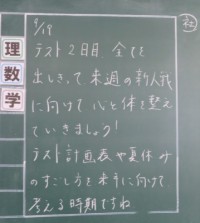 9/19
社
テスト2日目、全てを
出しきって来週の新人戦
に向けて心と体を整え
ていきましょう!
テスト計画表や夏休み
のすごし方を来年に向けて
考える時期ですね
理
数
学